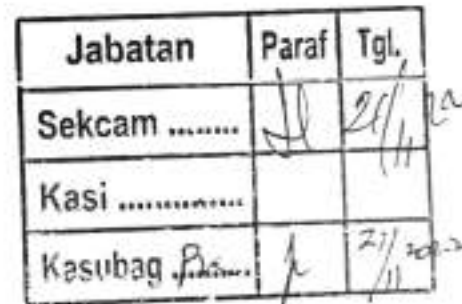 Jabatan Paraf Tgl.
Sekcam ........
Kasi ................
Kasubag ........ 21/11 2022